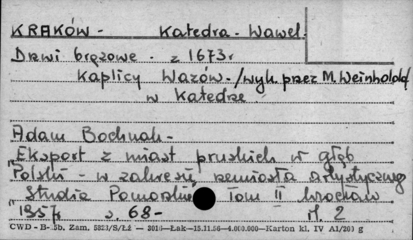 KRAKÓW - Katedra - Wawel.
Drzwi brązowe - z 1673 r
Kaplicy Wazów - /wyk. przez M. Weinholda/
w Katedrze
Adam Bochnak -
"Eksport z miast pruskich w głąb
Polski - w zakresie rzemiosła artystycznego"
"Studia Pomorskie" Tom II Wrocław
1957 r s. 68 - il. 2
CWD - B-15b. Zam. 5823/S/Łż — 2010—Łak—15.11.56—4.000.000—Karton kl. IV A1/200 g